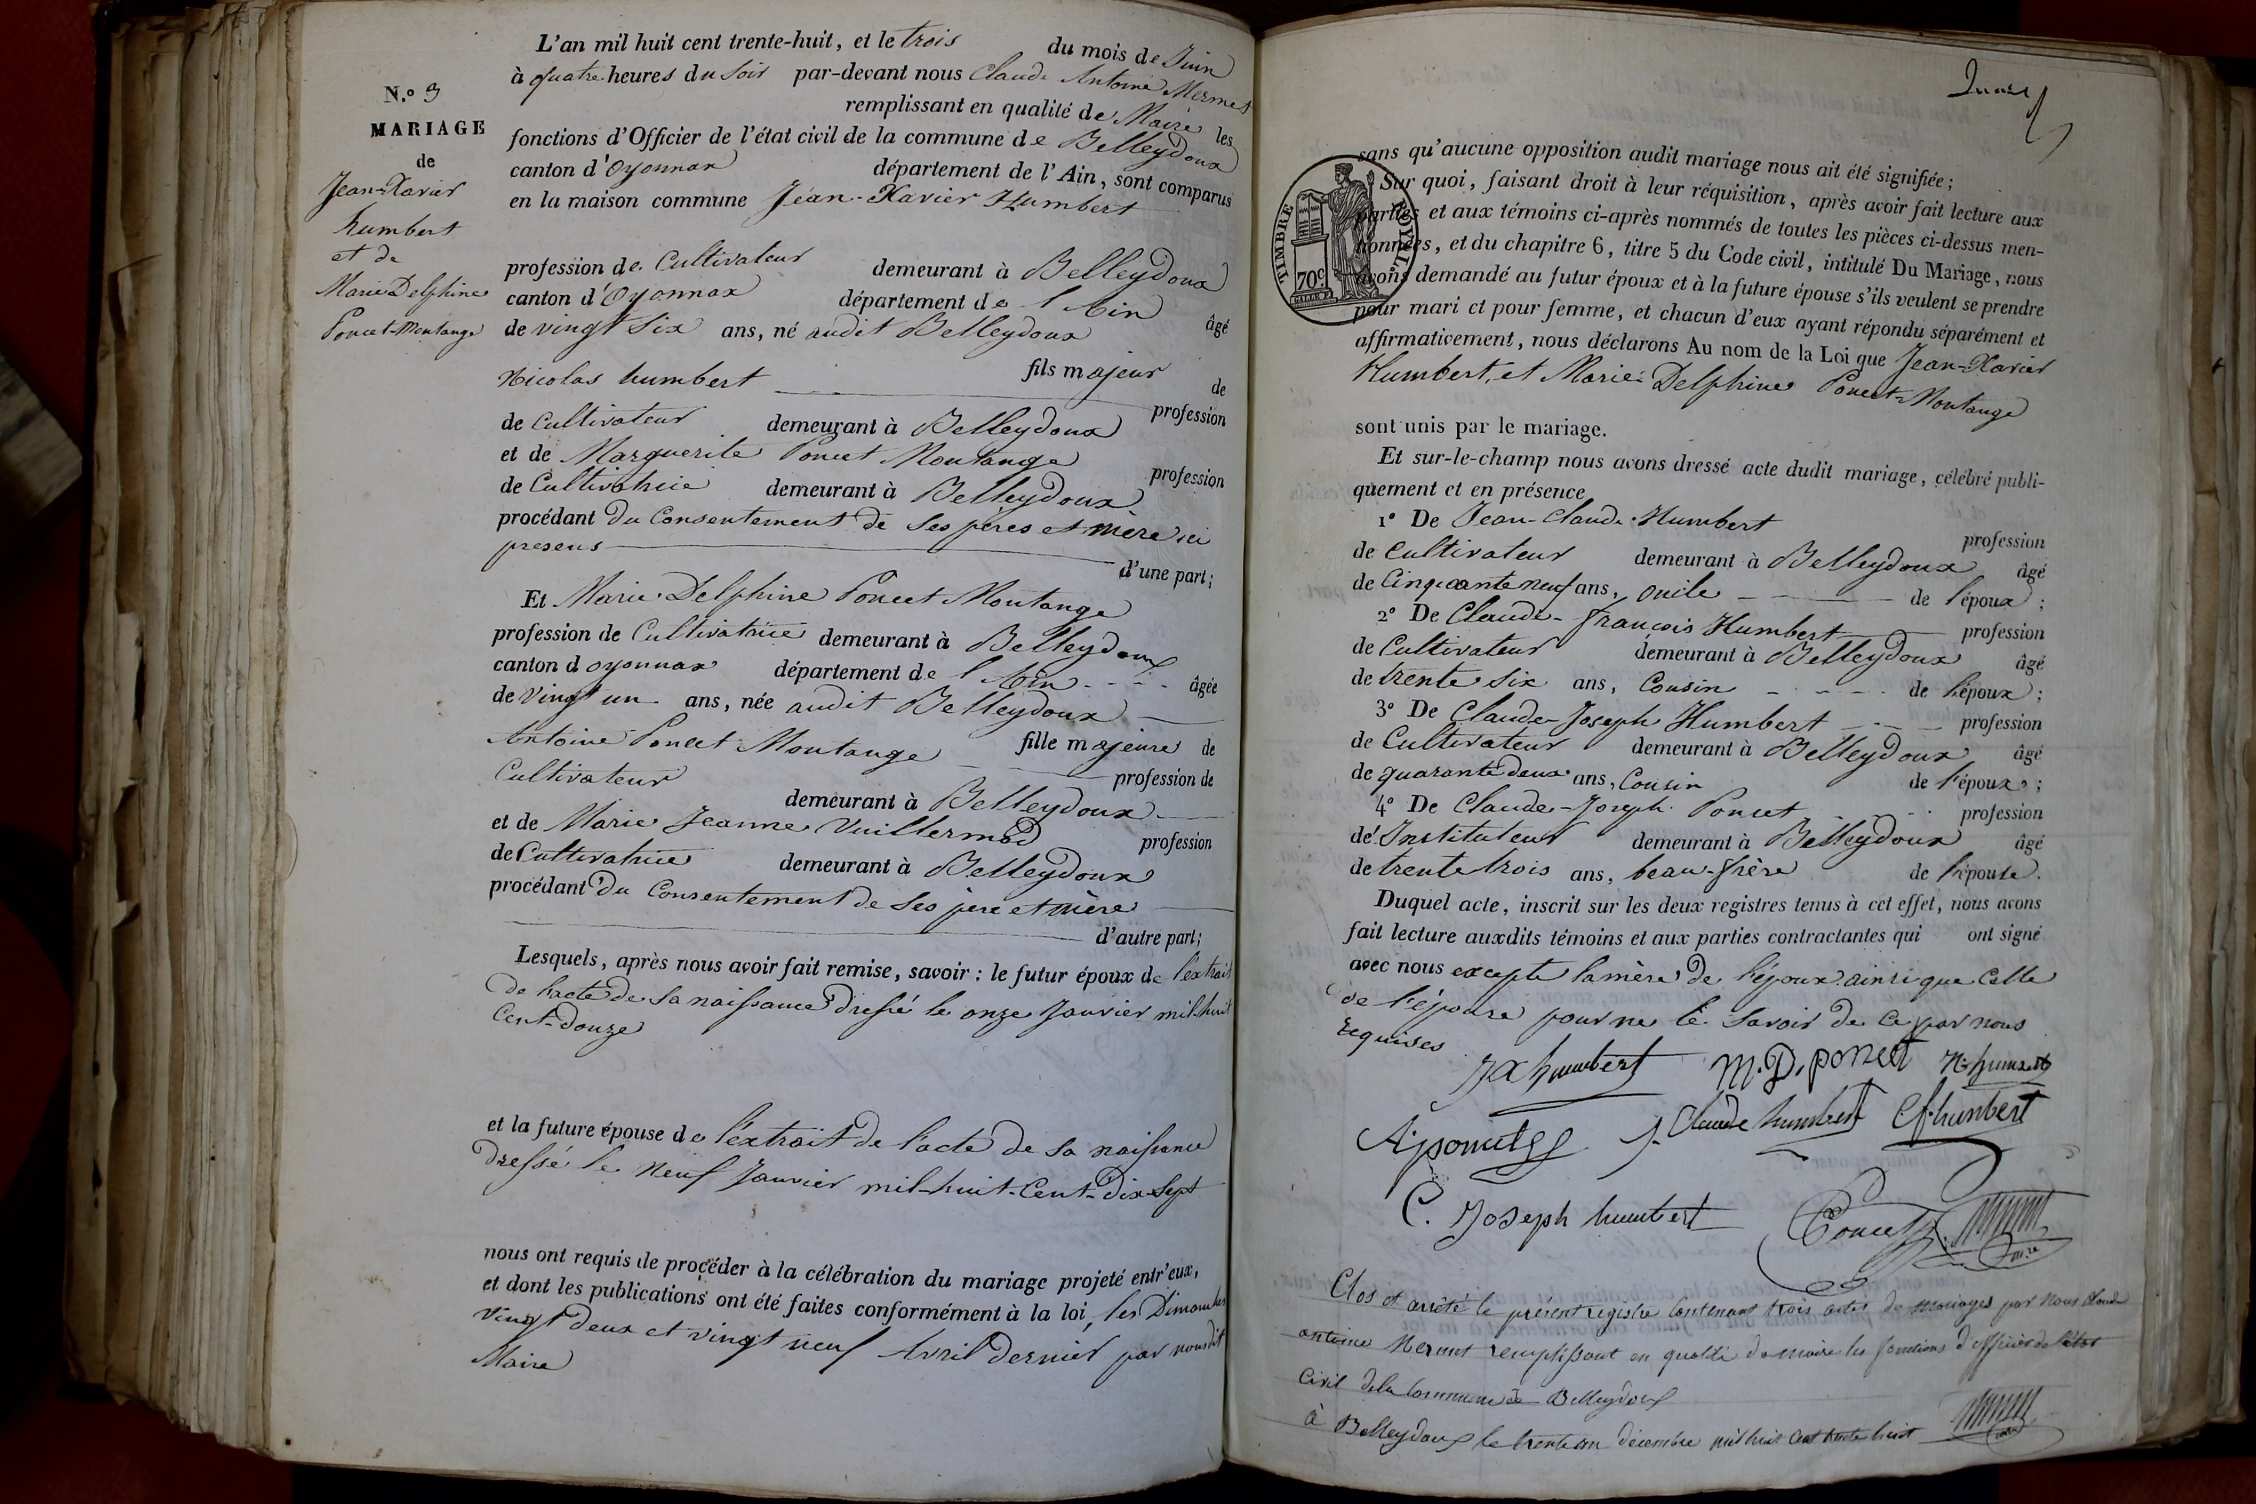 N.º 3
MARIAGE
de
Jean-Xavier
humbert
et de
Marie Delphine
Poncet-Montange
L'an mil huit cent trente-huit, et le trois du mois de Juin
à quatre heures du Soir par-devant nous Claude Antoine Mermet
remplissant en qualité de Maire les
fonctions d'Officier de l'état civil de la commune de Belleydoux
canton d'Oyonnax département de l'Ain, sont comparus
en la maison commune Jean-Xavier Humbert
profession de Cultivateur demeurant à Belleydoux
canton d'Oyonnax département de l'Ain âgé
de vingt Six ans, né audit Belleydoux
fils majeur de
Nicolas humbert profession
de Cultivateur demeurant à Belleydoux
et de Marguerite Poncet Montange profession
de Cultivatrice demeurant à Belleydoux
procédant du Consentement de Ses pères et mère ici
presens d'une part;
Et Marie Delphine Poncet Montange
profession de Cultivatrice demeurant à Belleydoux
canton d oyonnax département de l'Ain âgée
de Vingt un ans, née audit Belleydoux
fille majeure de
Antoine Poncet Montange profession de
Cultivateur demeurant à Belleydoux
et de Marie Jeanne Vuillermod profession
de Cultivatrice demeurant à Belleydoux
procédant du Consentement de Ses père et mère
d'autre part;
Lesquels, après nous avoir fait remise, savoir : le futur époux de l'extrait
de l'acte de Sa naissance dressé le onze Janvier mil-huit
Cent-douze
et la future épouse de l'extrait de l'acte de Sa naissance
dressé le Neuf Janvier mil-huit-Cent-Dix-Sept
nous ont requis de procéder à la célébration du mariage projeté entr'eux,
et dont les publications ont été faites conformément à la loi, les Dimanches
Vingt deux et vingt neuf Avril dernier par nous dit
Maire
TIMBRE ROYAL
70c
sans qu'aucune opposition audit mariage nous ait été signifiée;
Sur quoi, faisant droit à leur réquisition, après avoir fait lecture aux
parties et aux témoins ci-après nommés de toutes les pièces ci-dessus men-
tionnées, et du chapitre 6, titre 5 du Code civil, intitulé Du Mariage, nous
avons demandé au futur époux et à la future épouse s'ils veulent se prendre
pour mari et pour femme, et chacun d'eux ayant répondu séparément et
affirmativement, nous déclarons Au nom de la Loi que Jean-Xavier
Humbert, et Marie Delphine Poncet-Montange
sont unis par le mariage.
Et sur-le-champ nous avons dressé acte dudit mariage, célébré publi-
quement et en présence
1º De Jean-Claude Humbert profession
de Cultivateur demeurant à Belleydoux âgé
de Cinquante neuf ans, oncle de l'époux;
2º De Claude-françois Humbert profession
de Cultivateur demeurant à Belleydoux âgé
de trente Six ans, Cousin de l'époux;
3º De Claude-Joseph Humbert profession
de Cultivateur demeurant à Belleydoux âgé
de quarante deux ans, Cousin de l'époux;
4º De Claude-Joseph Poncet profession
de Instituteur demeurant à Belleydoux âgé
de trente trois ans, beau-frère de l'épouse.
Duquel acte, inscrit sur les deux registres tenus à cet effet, nous avons
fait lecture auxdits témoins et aux parties contractantes qui ont signé
avec nous excepté la mère de l'époux ainsi que Celle
de l'épouse pour ne le Savoir de Ce par nous
requises
J x humbert M. D. poncet N. humbert
J. Claude humbert Cf. humbert
C. Joseph humbert Poncet
Clos et arrêté le présent registre Contenant trois actes de mariages par Nous Claude
antoine Mermet remplissant en qualité de maire les fonctions d'officier de l'état
Civil de la Commune de Belleydoux
à Belleydoux le trente un décembre mil huit Cent trente huit